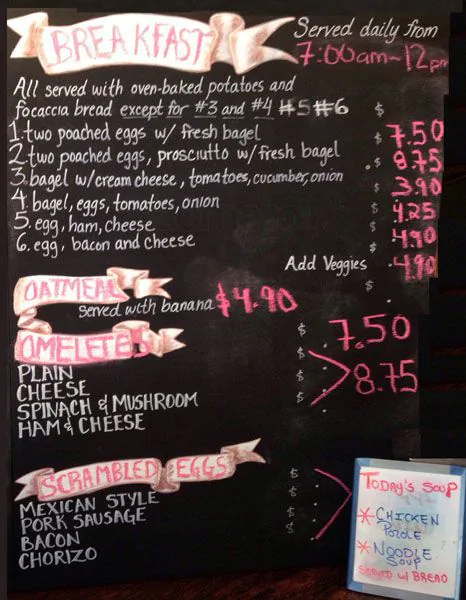 BREAKFAST
Served daily from
7:00am-12pm
All served with oven-baked potatoes and
focaccia bread except for #3 and #4 #5 #6
$
1. two poached eggs w/ fresh bagel $ 7.50
2. two poached eggs, prosciutto w/ fresh bagel $ 8.75
3. bagel w/ cream cheese, tomatoes, cucumber, onion $ 3.90
4. bagel, eggs, tomatoes, onion $ 4.25
5. egg, ham, cheese $ 4.90
6. egg, bacon and cheese $ 4.90
Add Veggies $
OATMEAL
served with banana $4.90
OMELETES
PLAIN $ 7.50
CHEESE $
SPINACH & MUSHROOM $ 8.75
HAM & CHEESE $
SCRAMBLED EGGS
MEXICAN STYLE $
PORK SAUSAGE $
BACON $
CHORIZO $
TODAY'S SOUP
* CHICKEN
POZOLE
* NOODLE
SOUP
SERVED w/ BREAD